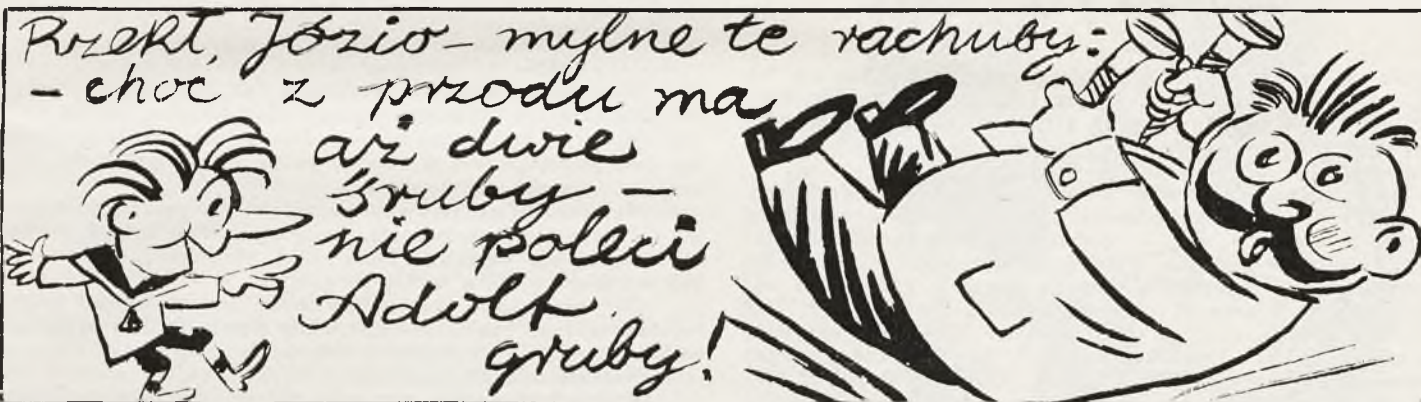 Rzekł, Józio – mylne te rachuby:
– choć z przodu ma
aż dwie
śruby –
nie poleci
Adolf
gruby!